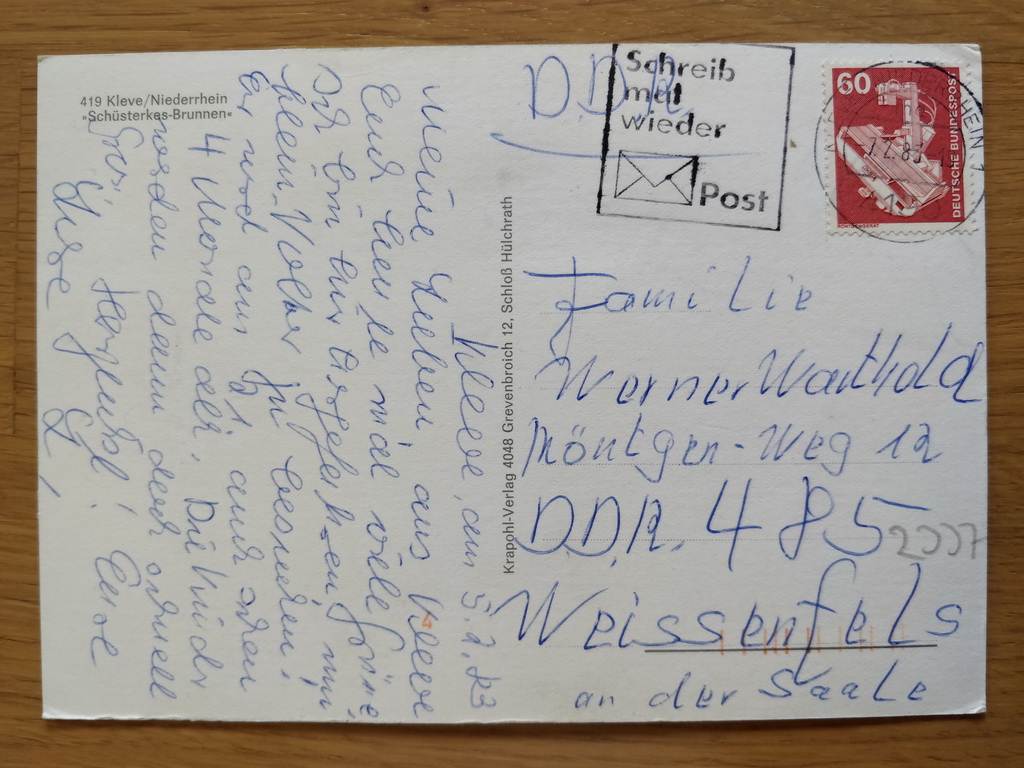 419 Kleve/Niederrhein
"Schüsterkes-Brunnen"
Kleve, am 5.2.83
Meine Lieben, aus Kleve
Euch heute mal viele Grüße,
Ich bin hier
klein Volker zu besuchen.
Er wird am 21. auch schon
4 Monate alt. Die Kinder
werden dann doch schnell
groß. Herzlichst! Eure
Krapohl-Verlag 4048 Grevenbroich 12, Schloß Hülchrath
D.D.R.
Schreib
mal
wieder
Post
60
DEUTSCHE BUNDESPOST
Familie
Werner Warthold
Röntgen-Weg 12
DDR. 485
Weissenfels
an der Saale